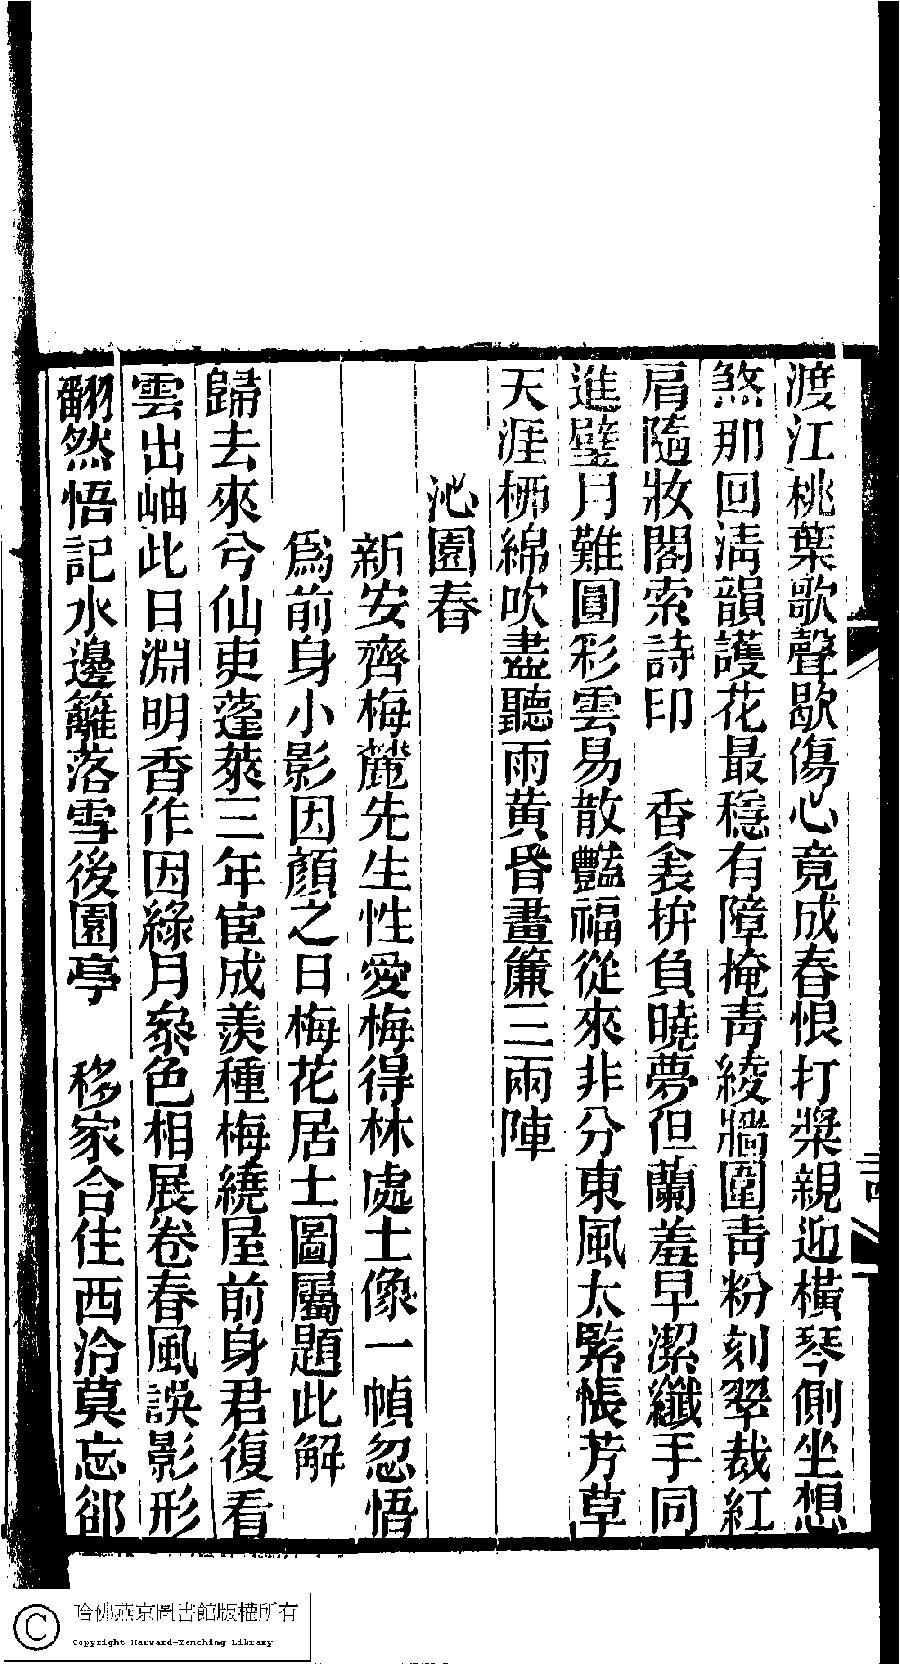 渡江桃葉歌聲歇傷心竟成春恨打槳親迎橫琴側坐想
煞那回淸韻護花最穩有障掩靑綾牆圍靑粉刻翠裁紅
肩隨妝閣索詩印　香衾拚負曉夢但蘭羞早潔纖手同
進璧月難圓彩雲易散豔福從來非分東風太緊悵芳草
天涯桺綿吹盡聽雨黃昏畫簾三兩陣
沁園春
新安齊梅麓先生性愛梅得林處士像一幀忽悟
爲前身小影因顏之日梅花居士圖屬題此解
歸去來兮仙吏蓬萊三年宦成羨種梅繞屋前身君復看
雲出岫此日淵明香作因緣月叅色相展卷春風誤影形
翻然悟記水邊籬落雪後園亭　移家合住西泠莫忘郤
二四
哈佛燕京圖書館版權所有
Copyright Harvard-Yenching Library